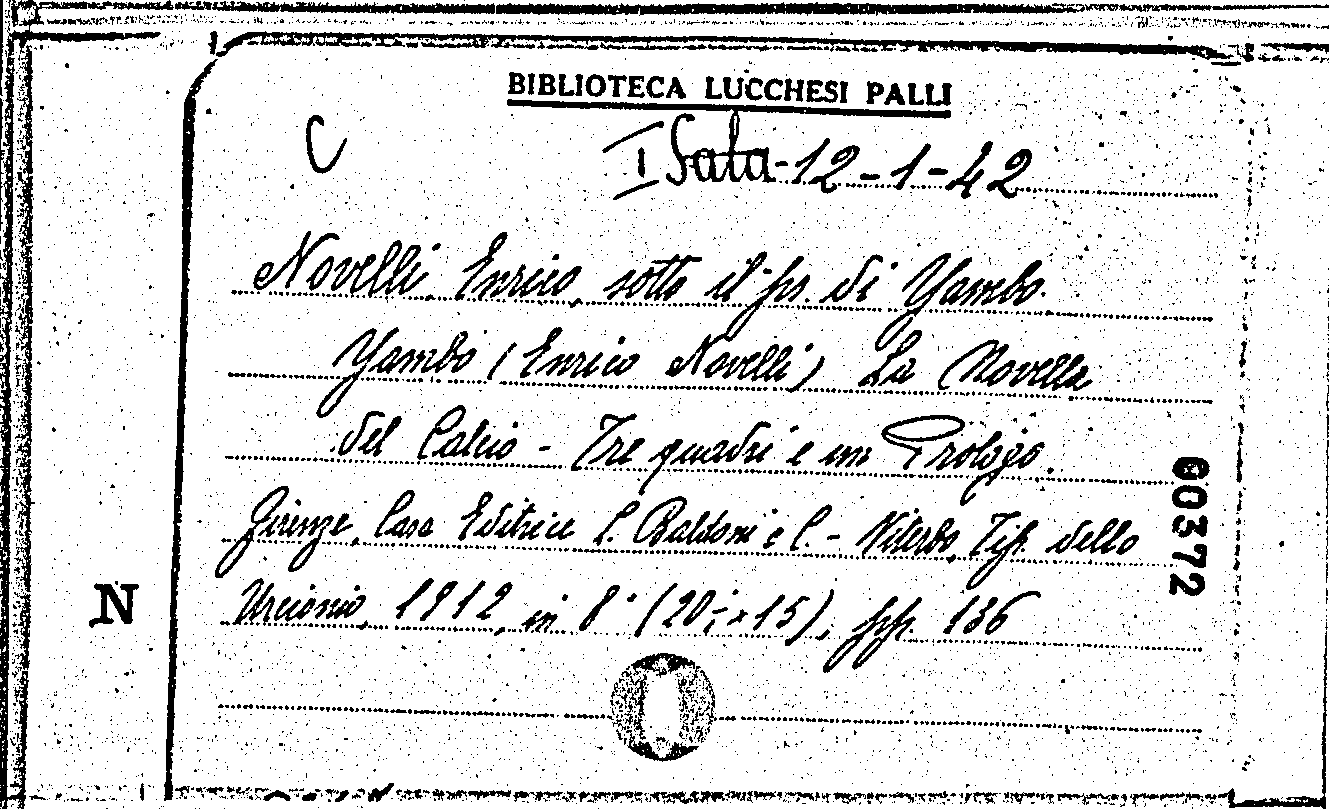 BIBLIOTECA LUCCHESI PALLI
C
I Sala-12-1-42
Novelli Enrico, sotto il ps. di Yambo.
Yambo (Enrico Novelli) La Novella
del Calcio - Tre quadri e un Prologo.
Firenze, Casa Editrice L. Baldoni e C. - Viterbo, Tip. dello
Urcionio, 1912, in 8° (20, × 15), pp. 136
00372
N